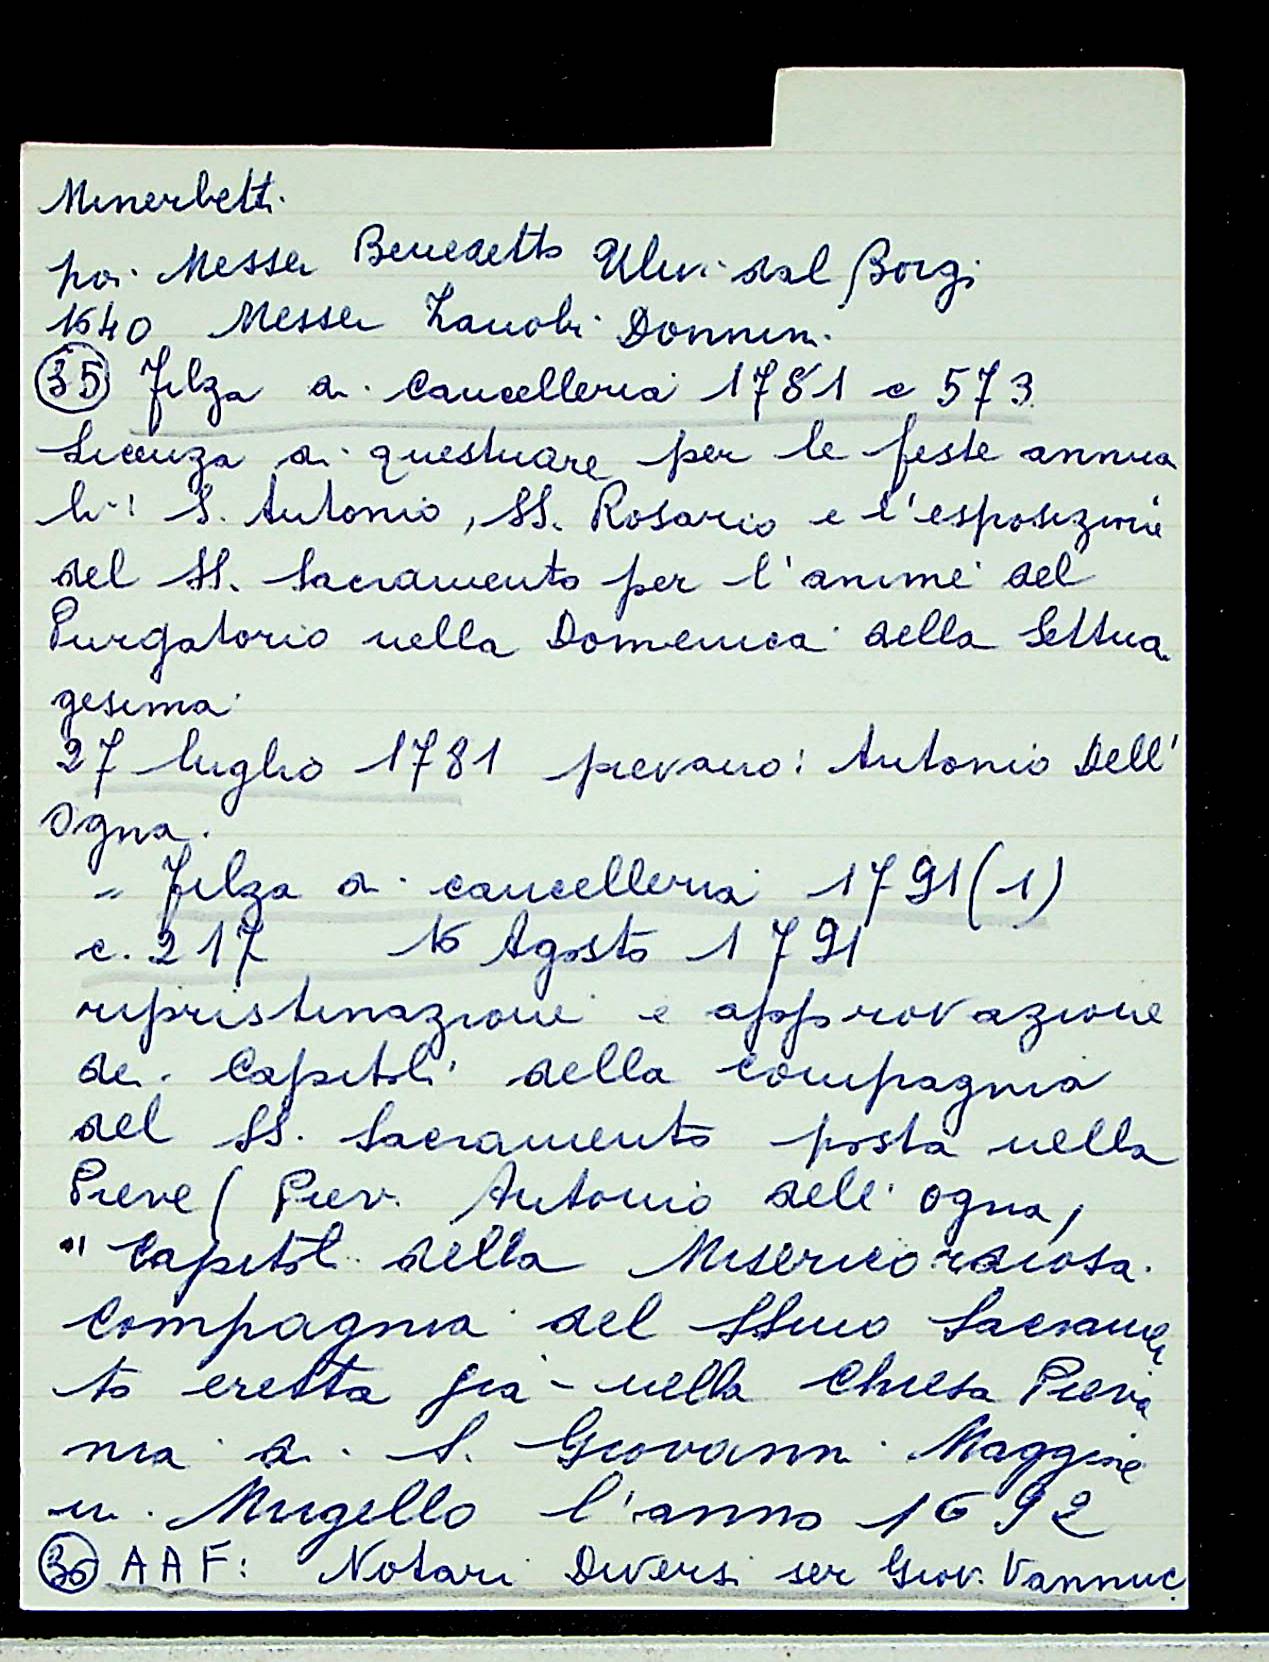 Minerbetti
poi Messer Benedetto Ulivi dal Borgi
1640 Messer Zanobi Donnini
35 Filza di Cancelleria 1781 c 573
Licenza di questuare per le feste annua
li: S. Antonio, SS. Rosario e l'esposizione
del SS. Sacramento per l'anime del
Purgatorio nella Domenica della Settua
gesima
27 luglio 1781 pievano: Antonio Dell'
Ogna.
" Filza di cancelleria 1791(1)
c. 217 16 Agosto 1791
ripristinazione e approvazione
dei Capitoli della compagnia
del SS. Sacramento posta nella
Pieve (Piev. Antonio dell'Ogna,
"Capitoli della Misericordiosa
Compagnia del SSmo Sacramen
to eretta già nella Chiesa Pieva
nia di S. Giovanni Maggiore
in Mugello l'anno 1692
36 AAF: Notari Diversi ser Giov. Vannuc